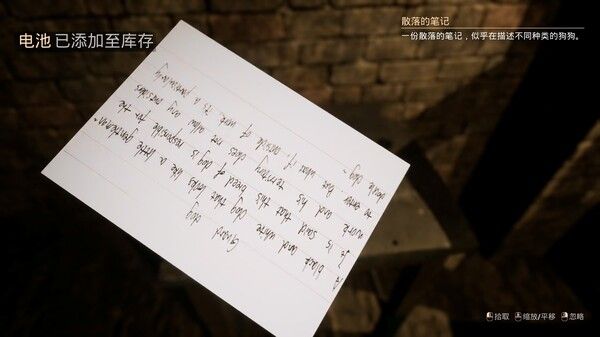 电池 已添加至库存
散落的笔记
一份散落的笔记，似乎在描述不同种类的狗狗。
Guard dog
A black and white dog that looks like a little gentleman.
It is said that this breed of dog is responsible for the
work and his territory does not allow any outsiders
to enter. But what if outside of work its a particularly
docile dog.
拾取 缩放/平移 忽略